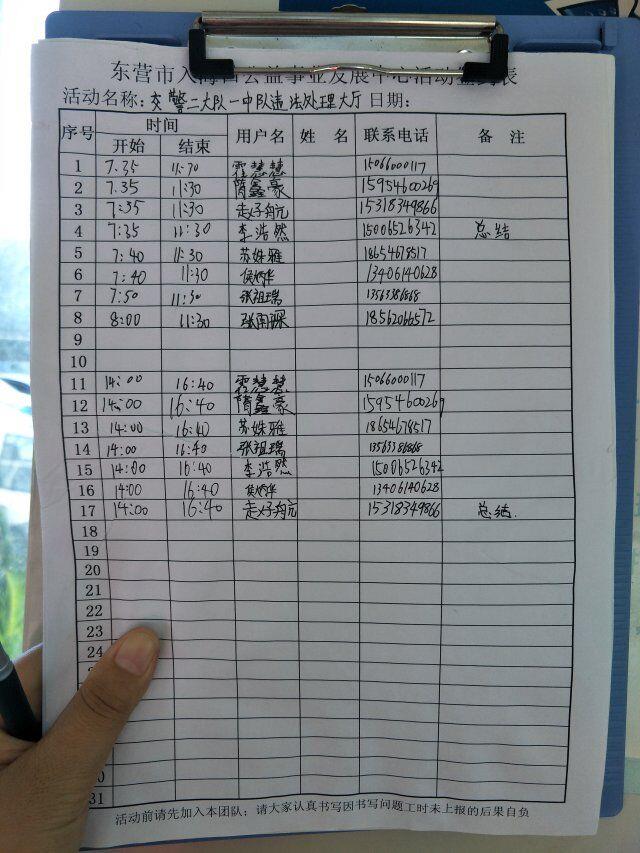 东营市入海口公益事业发展中心活动签到表
活动名称:交警二大队一中队违法处理大厅 日期:
序号 时间 用户名 姓 名 联系电话 备 注
开始 结束
1 7.35 11:30 霍慧慧 15066000117
2 7.35 11:30 隋鑫豪 15954600269
3 7:35 11:30 走好航 15318349866
4 7:35 11:30 李浩然 15006526342 总结
5 7:40 11:30 苏姝雅 18654678517
6 7:40 11:30 侯炳华 13406140628
7 7:50 11:30 张祖瑞 13563386868
8 8:00 11:30 张雨琛 18562066572
9
10
11 14:00 16:40 霍慧慧 15066000117
12 14:00 16:40 隋鑫豪 15954600269
13 14:00 16:40 苏姝雅 18654678517
14 14:00 16:40 张祖瑞 13563386868
15 14:00 16:40 李浩然 15006526342
16 14:00 16:40 侯炳华 13406140628
17 14:00 16:40 走好航 15318349866 总结.
18
19
20
21
22
23
24
31
活动前请先加入本团队；请大家认真书写因书写问题工时未上报的后果自负